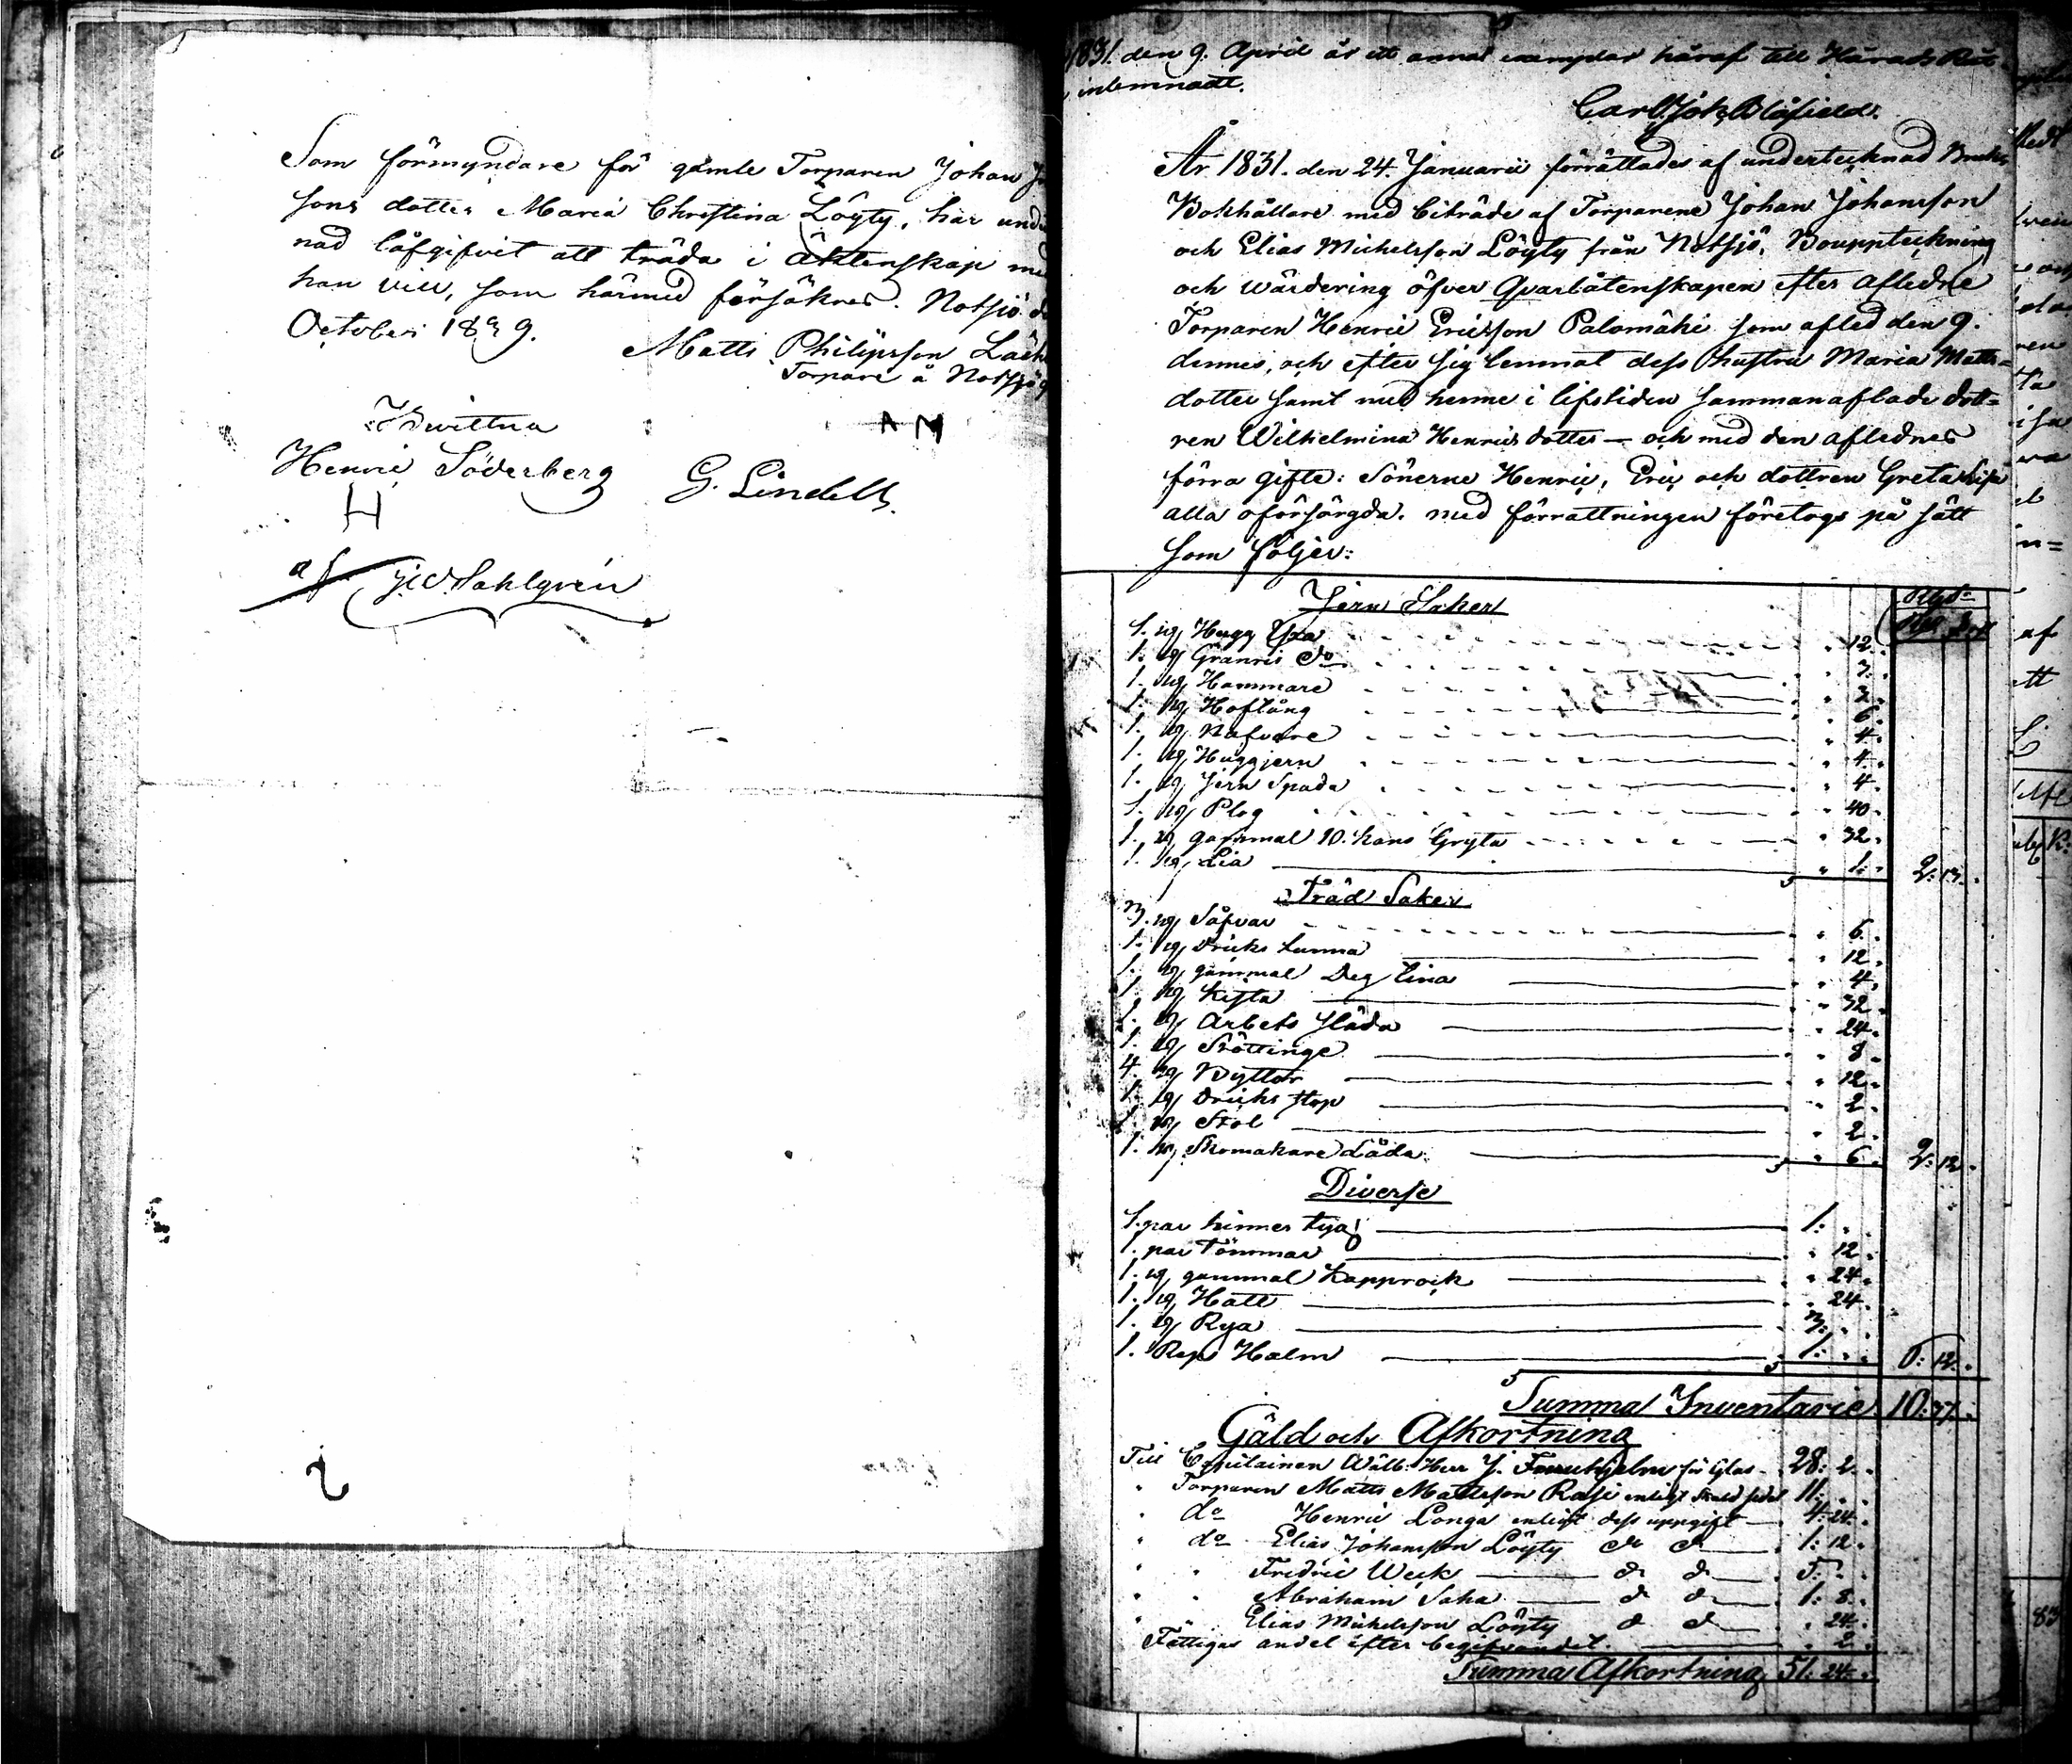 Som förmyndare för gamle Torparen Johan
sons dotter Maria Christina Löyty, har
nad låfgifvit att träda i Äktenskap
han vill, som härmed försäkras. Notsjö
October 1829.
Matts Philipsson
Torpare å Notsjö
Bewittna
Henric Söderberg
H
G. Lindell
Sahlgren
1831. den 9. April är ett annat exemplar häraf till Härads
inlemnadt.
Carl Joh. Blåfield.
År 1831. den 24. Januarii förrättades af undertecknad Bruks
Bokhållare med biträde af Torparene Johan Johansson
och Elias Michelsson Löyty från Notsjö, Bouppteckning
och wärdering öfver Qvarlåtenskapen efter aflidne
Torparen Henric Ericsson Palomäki som afled den 9.
dennes, och efter sig lemnat dess hustru Maria Matts=
dotter samt med henne i lifstiden sammanaflade dot=
ren Wilhelmina Henrics dotter — och med den aflednes
förra gifte: Sönerne Henric, Eric och dottren Greta Lisa
alla oförsörgda. med förrättningen företogs på sätt
som följer:
Jern Saker
1. st Hugg Yxa 12.
1. st Granris do 3.
1. st Hammare 3.
1. st Hoftång 6.
1. st Nafvare 4.
1. st Huggjern 4.
1. st Jern Spada 4.
1. st Plog 40.
1. st gammal 10. kans Gryta 32.
1. st Lia 1. 2: 13.
Träd Saker
3. st Såfvar 6.
1. st Dricks tunna 12.
1. st gammal Deg tina 4.
1. st Kista 32.
1. st Arbets släda 24.
1. st Stöttinge 8.
4. st Byttor 12.
1. st Dricks stop 2.
1. st Stol 2.
1. st Skomakare Låda 6. 2: 12.
Diverse
1. par kinnes tyg 1:
1. par Tömmar 12.
1. st gammal Kapprock 24.
1. st Hatt 24.
1. st Rya 3:
1. Reps Halm 1: 6: 12.
Summa Inventarie 10: 37.
Gäld och Afkortning
Till Capitainen Wälb: Herr J. Furuhjelm för Glas 28: 2.
" Torparen Matts Mattsson Rasi enligt Skuld sedel 11:
" do Henric Longa enligt dess uppgift 4: 24.
" do Elias Johansson Löyty do do 1: 12.
" " Fredric Week do do 5:
" " Abraham Saha do do 1: 8.
" Elias Michelsson Löyty do do 24.
Fattigas andel efter begifvandet 2.
Summa Afkortning 51: 24.